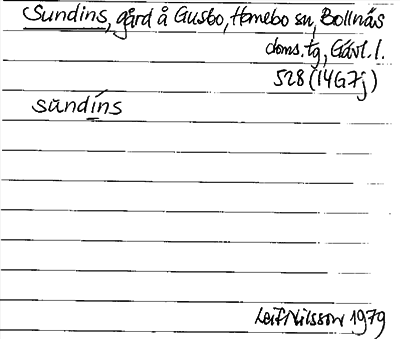 Sundins, gård å Gusbo, Homebo sn, Bollnäs
doms.tg, Gävl.l.
528 (14G7j)
sundíns
Leif Nilsson 1979